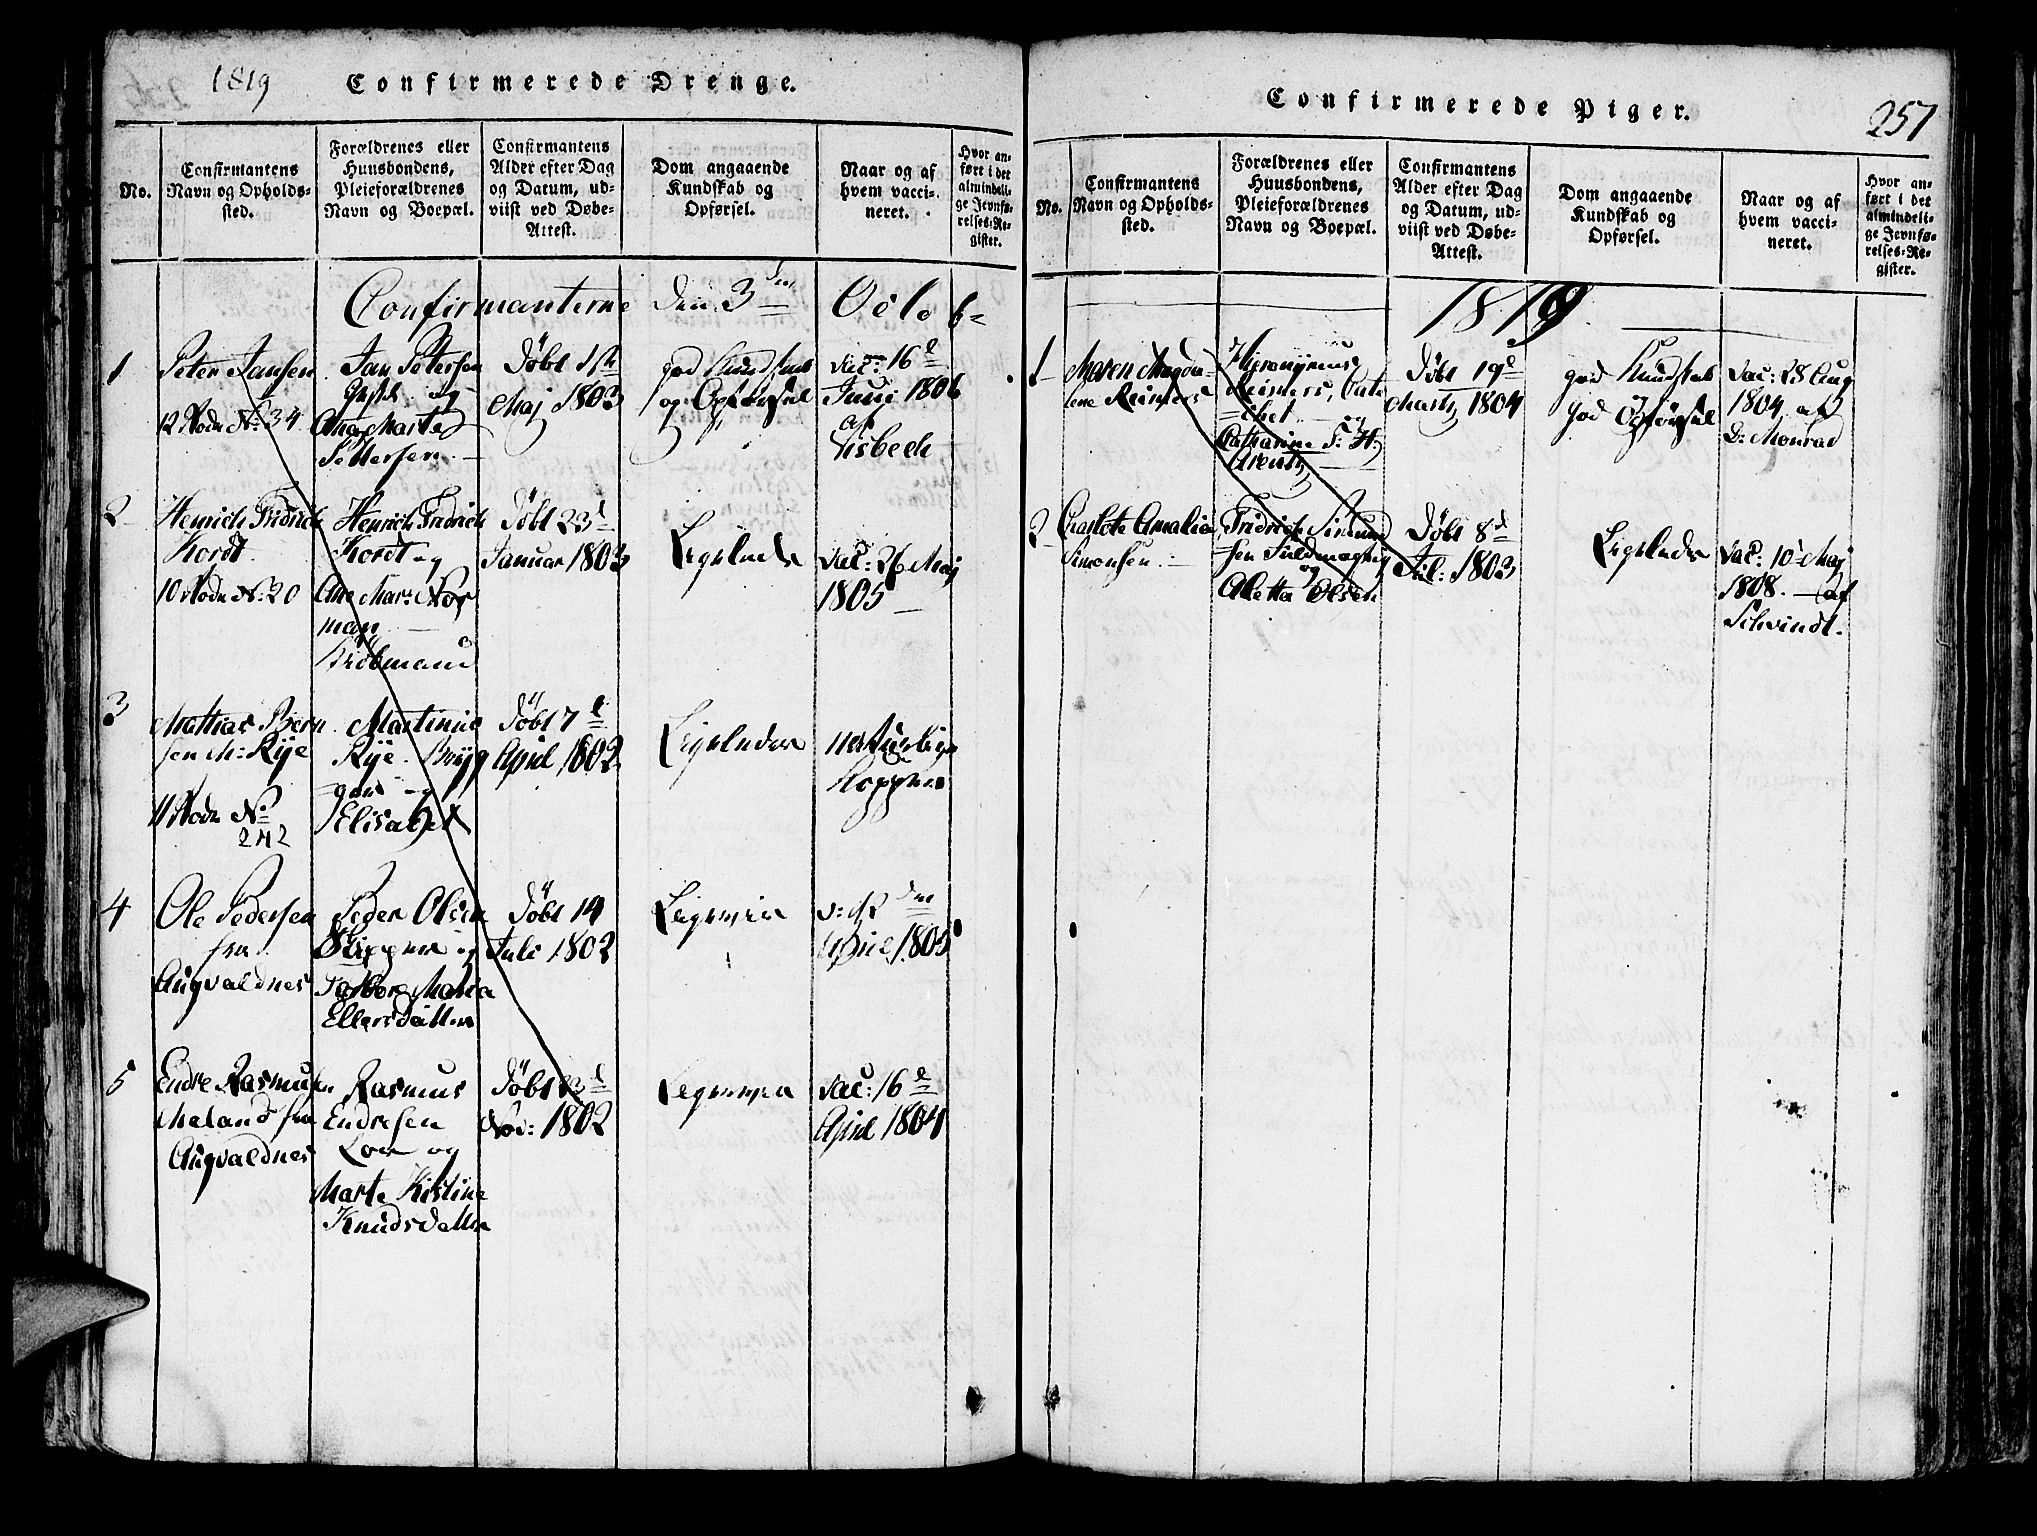 1819 Confirmerede Drenge.
No.
Confirmantens
Navn og Opholds-
sted.
Forældrenes eller
Huusbondens,
Pleieforældrenes
Navn og Boepæl.
Confirmantens
Alder efter Dag
og Datum, ud-
viist ved Døbe-
Attest.
Dom angaaende
Kundskab og
Opførsel.
Naar og af
hvem vacci-
neret.
Hvor an-
ført i det
almindeli-
ge Jevnfø-
relses-Re-
gister.
Confirmanterne den 3den Octob=
1
Peter Jansen
12 Rode No: 34
Jan Petersen
og
Ane Marte
Pettersen
Døbt 1te
Maj 1803
god Kundskab
og Opførsel
Vac: 16d
Juni 1806
af
Lisbech
2
Henrich Fridrich
Kordt
10 Rode No: 20
Henrich Fridrich
Kordt og
Ane Mar:
Døbt 23d
Januar 1803
Ligeledes
Vac: 26 Maj
1805
3
Mathias Bern
sen M: Rye
11 Rode No
242
Martinus
Rye. Brygg
og
Elisabet
Døbt 7d
April 1802
Ligeledes
Kopper
4
Ole Pedersen
fra
Augvaldnes
Peder Olsen
og
Maria
Ellersdatter
Døbt 14
Juli 1802
Ligesaa
April 1805
5
Endre Rasmusen
Meland fra
Augvaldnes
Rasmus
Endresen
og
Marte Kistine
Knudsdatter
Døbt 23d
Nov: 1802
Ligesaa
Vac: 16d
April 1804
Confirmerede Piger. 257
No.
Confirmantens
Navn og Opholds-
sted.
Forældrenes eller
Huusbondens,
Pleieforældrenes
Navn og Boepæl.
Confirmantens
Alder efter Dag
og Datum, ud-
viist ved Døbe-
Attest.
Dom angaaende
Kundskab og
Opførsel.
Naar og af
hvem vacci-
neret.
Hvor an-
ført i det
almindeli-
ge Jevnfø-
relses-Re-
gister.
1819
1
Maren Magda-
lene Reimers
Hyeronymus
Reimers, Cate
=chet
Catharine F: H:
Arentz
Døbt 19d
Marts 1804
god Kundskab
god Opførsel
Vac: 28 Aug
1804 af
D: Monrad
2
Charlote Amalia
Simonsen
Fridrich Simond
sen Fuldmægtig
og
Aletta Olsen
Døbt 8d
1803
Ligeledes
Vac: 10 Maj
1808. af
Schvindt.